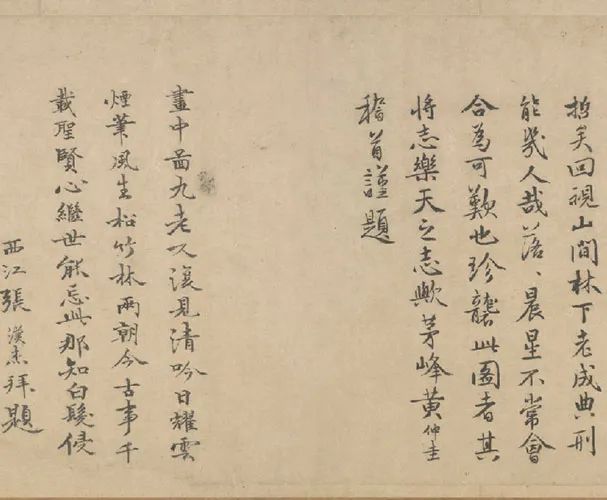 哲矣回視山間林下老成典刑
能幾人哉落、晨星不常會
合為可歎也珍襲此圖者其
將志樂天之志歟茅峰黃仲圭
稽首謹題
畫中啚九老又復見清吟日耀雲
煙筆風生松竹林兩朝今古事千
載聖賢心繼世能忘此那知白髮侵
西江張漢杰拜題